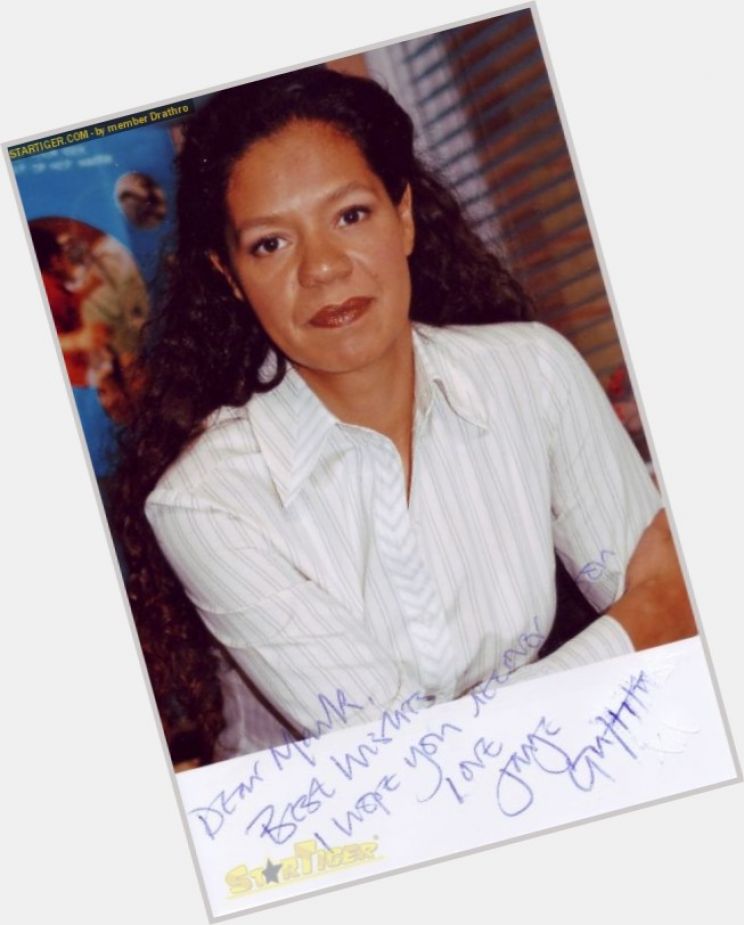 STARTIGER.COM - by member Drathro
Dear Mark,
Best wishes
I hope you recover soon
Love Jaye
Griffiths
STARTIGER